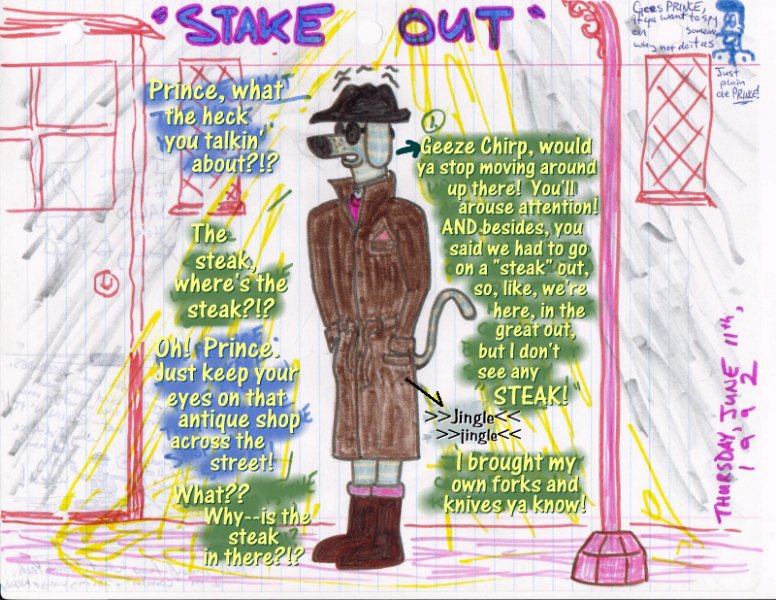 "STAKE OUT"
Gees PRINCE,
if ya want to spy
on someone
why not do it as
Just
plain
ole PRINCE!
1
Geeze Chirp, would
ya stop moving around
up there! You'll
arouse attention!
AND besides, you
said we had to go
on a "steak" out,
so, like, we're
here, in the
great out,
but I don't
see any
"STEAK!"
Prince, what
the heck
you talkin'
about?!?
The
steak,
where's the
steak?!?
Oh! Prince.
Just keep your
eyes on that
antique shop
across the
street!
What??
Why--is the
steak
in there?!?
>>Jingle<<
>>jingle<<
I brought my
own forks and
knives ya know!
THURSDAY, JUNE 11th,
1992